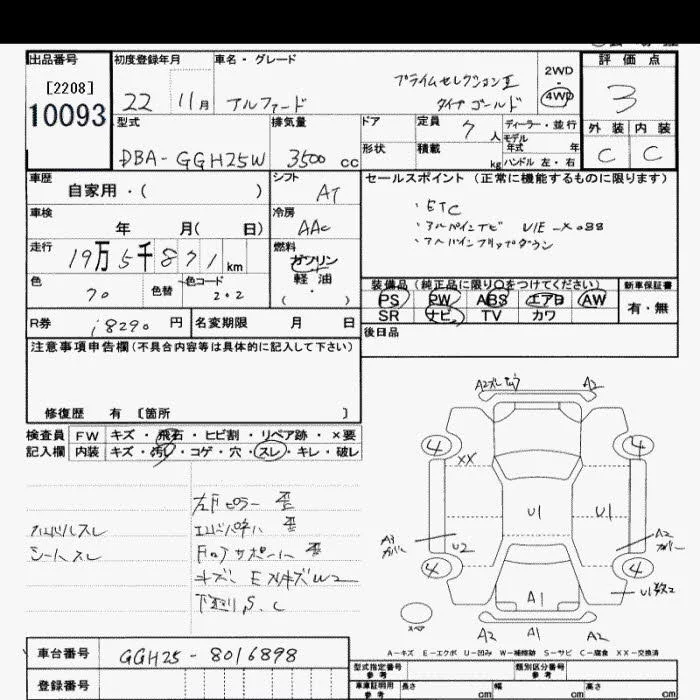 出品番号
[2208]
10093
初度登録年月
22 11月
車名・グレード
アルファード
プライムセレクションⅡ
タイプゴールド
2WD・4WD
評価点
3
外装 内装
C C
型式
DBA-GGH25W
排気量
3500 cc
ドア
形状
定員 7 人
積載 kg
ディーラー・並行
モデル年式 年
ハンドル 左・右
車歴
自家用・( )
シフト
AT
セールスポイント(正常に機能するものに限ります)
・ETC
・アルパインナビ VIE-X088
・アルパインフリップダウン
車検
年 月( 日)
冷房
AAC
走行
19万5千871km
燃料
ガソリン
軽油
( )
色
70
色替
色コード
202
装備品(純正品に限り○をつけてください)
PS PW ABS エアB AW
SR ナビ TV カワ
新車保証書
有・無
R券
18290 円
名変期限 月 日
後日品
注意事項申告欄(不具合内容等は具体的に記入して下さい)
修復歴 有 〔箇所 〕
検査員記入欄
FW キズ・飛石・ヒビ割・リペア跡・×要
内装 キズ・汚れ・コゲ・穴・スレ・キレ・破レ
左Fピラー 歪
ハンドルスレ
エンドパネル 歪
シートスレ
Fコアサポート 歪
キズ、EスリキズW2
下廻りS、C
A2 A2
4 4
XX
U1 U1
A3 カバー
U2
A2 カバー
4 4
A1
U1数2
スペア
A2 A1 A2
A-キズ E-エクボ U-凹み W-補修跡 S-サビ C-腐食 XX-交換済
車台番号
GGH25-8016898
登録番号
型式指定番号 参考
類別区分番号 参考
車庫証明用 参考
長さ cm
幅 cm
高さ cm